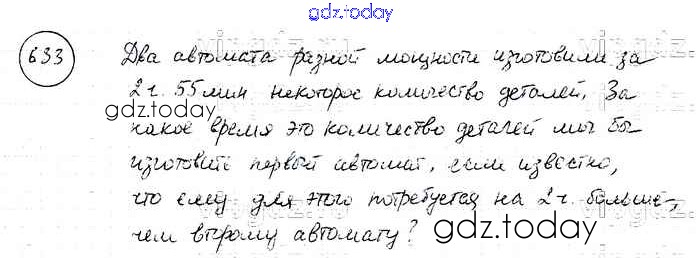 gdz.today
633 Два автомата разной мощности изготовили за
2 ч. 55 мин некоторое количество деталей. За
gdz.today
какое время это количество деталей мог бы
изготовить первый автомат, если известно,
что ему для этого потребуется на 2 ч. больше,
чем второму автомату?
gdz.today